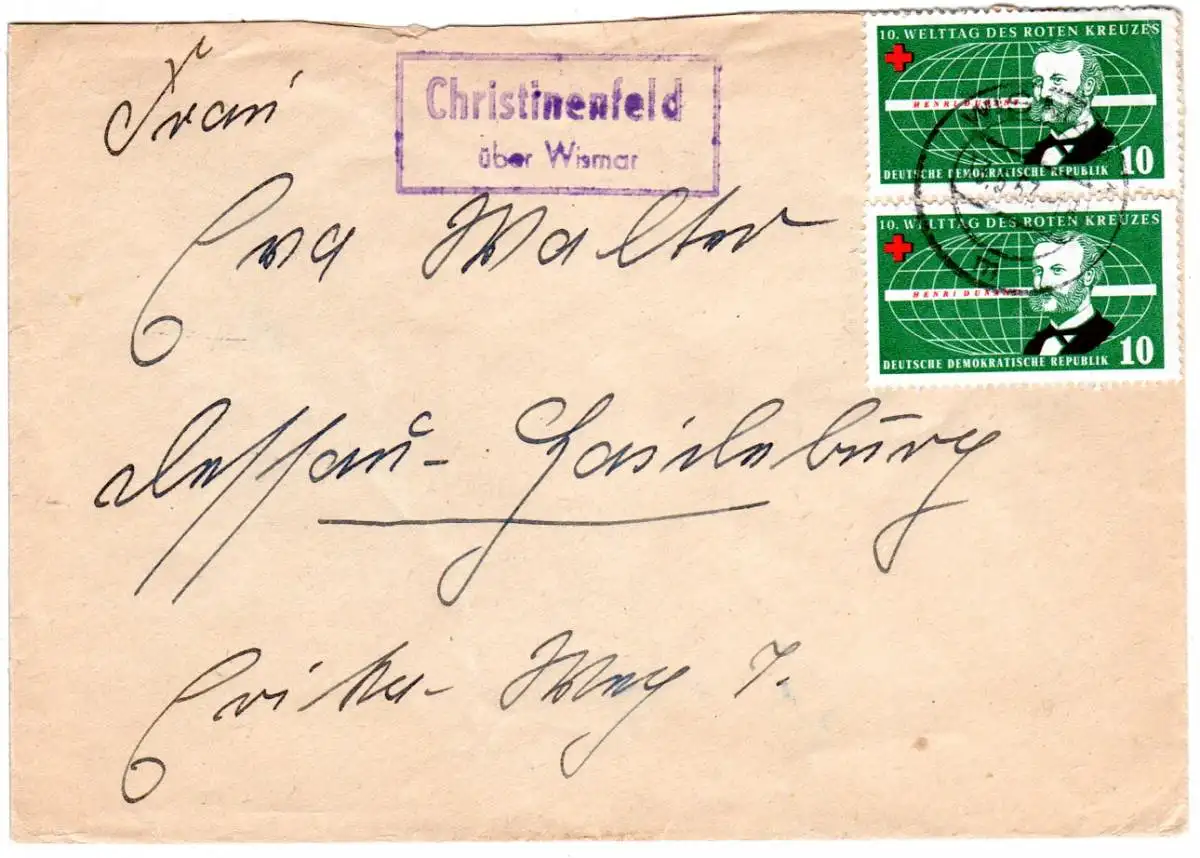 Frau
Christinenfeld
über Wismar
Eva Walter
Dessau-Haideburg
Erika-Weg 7.
10. WELTTAG DES ROTEN KREUZES
HENRI DUNANT
DEUTSCHE DEMOKRATISCHE REPUBLIK 10
10. WELTTAG DES ROTEN KREUZES
HENRI DUNANT
DEUTSCHE DEMOKRATISCHE REPUBLIK 10